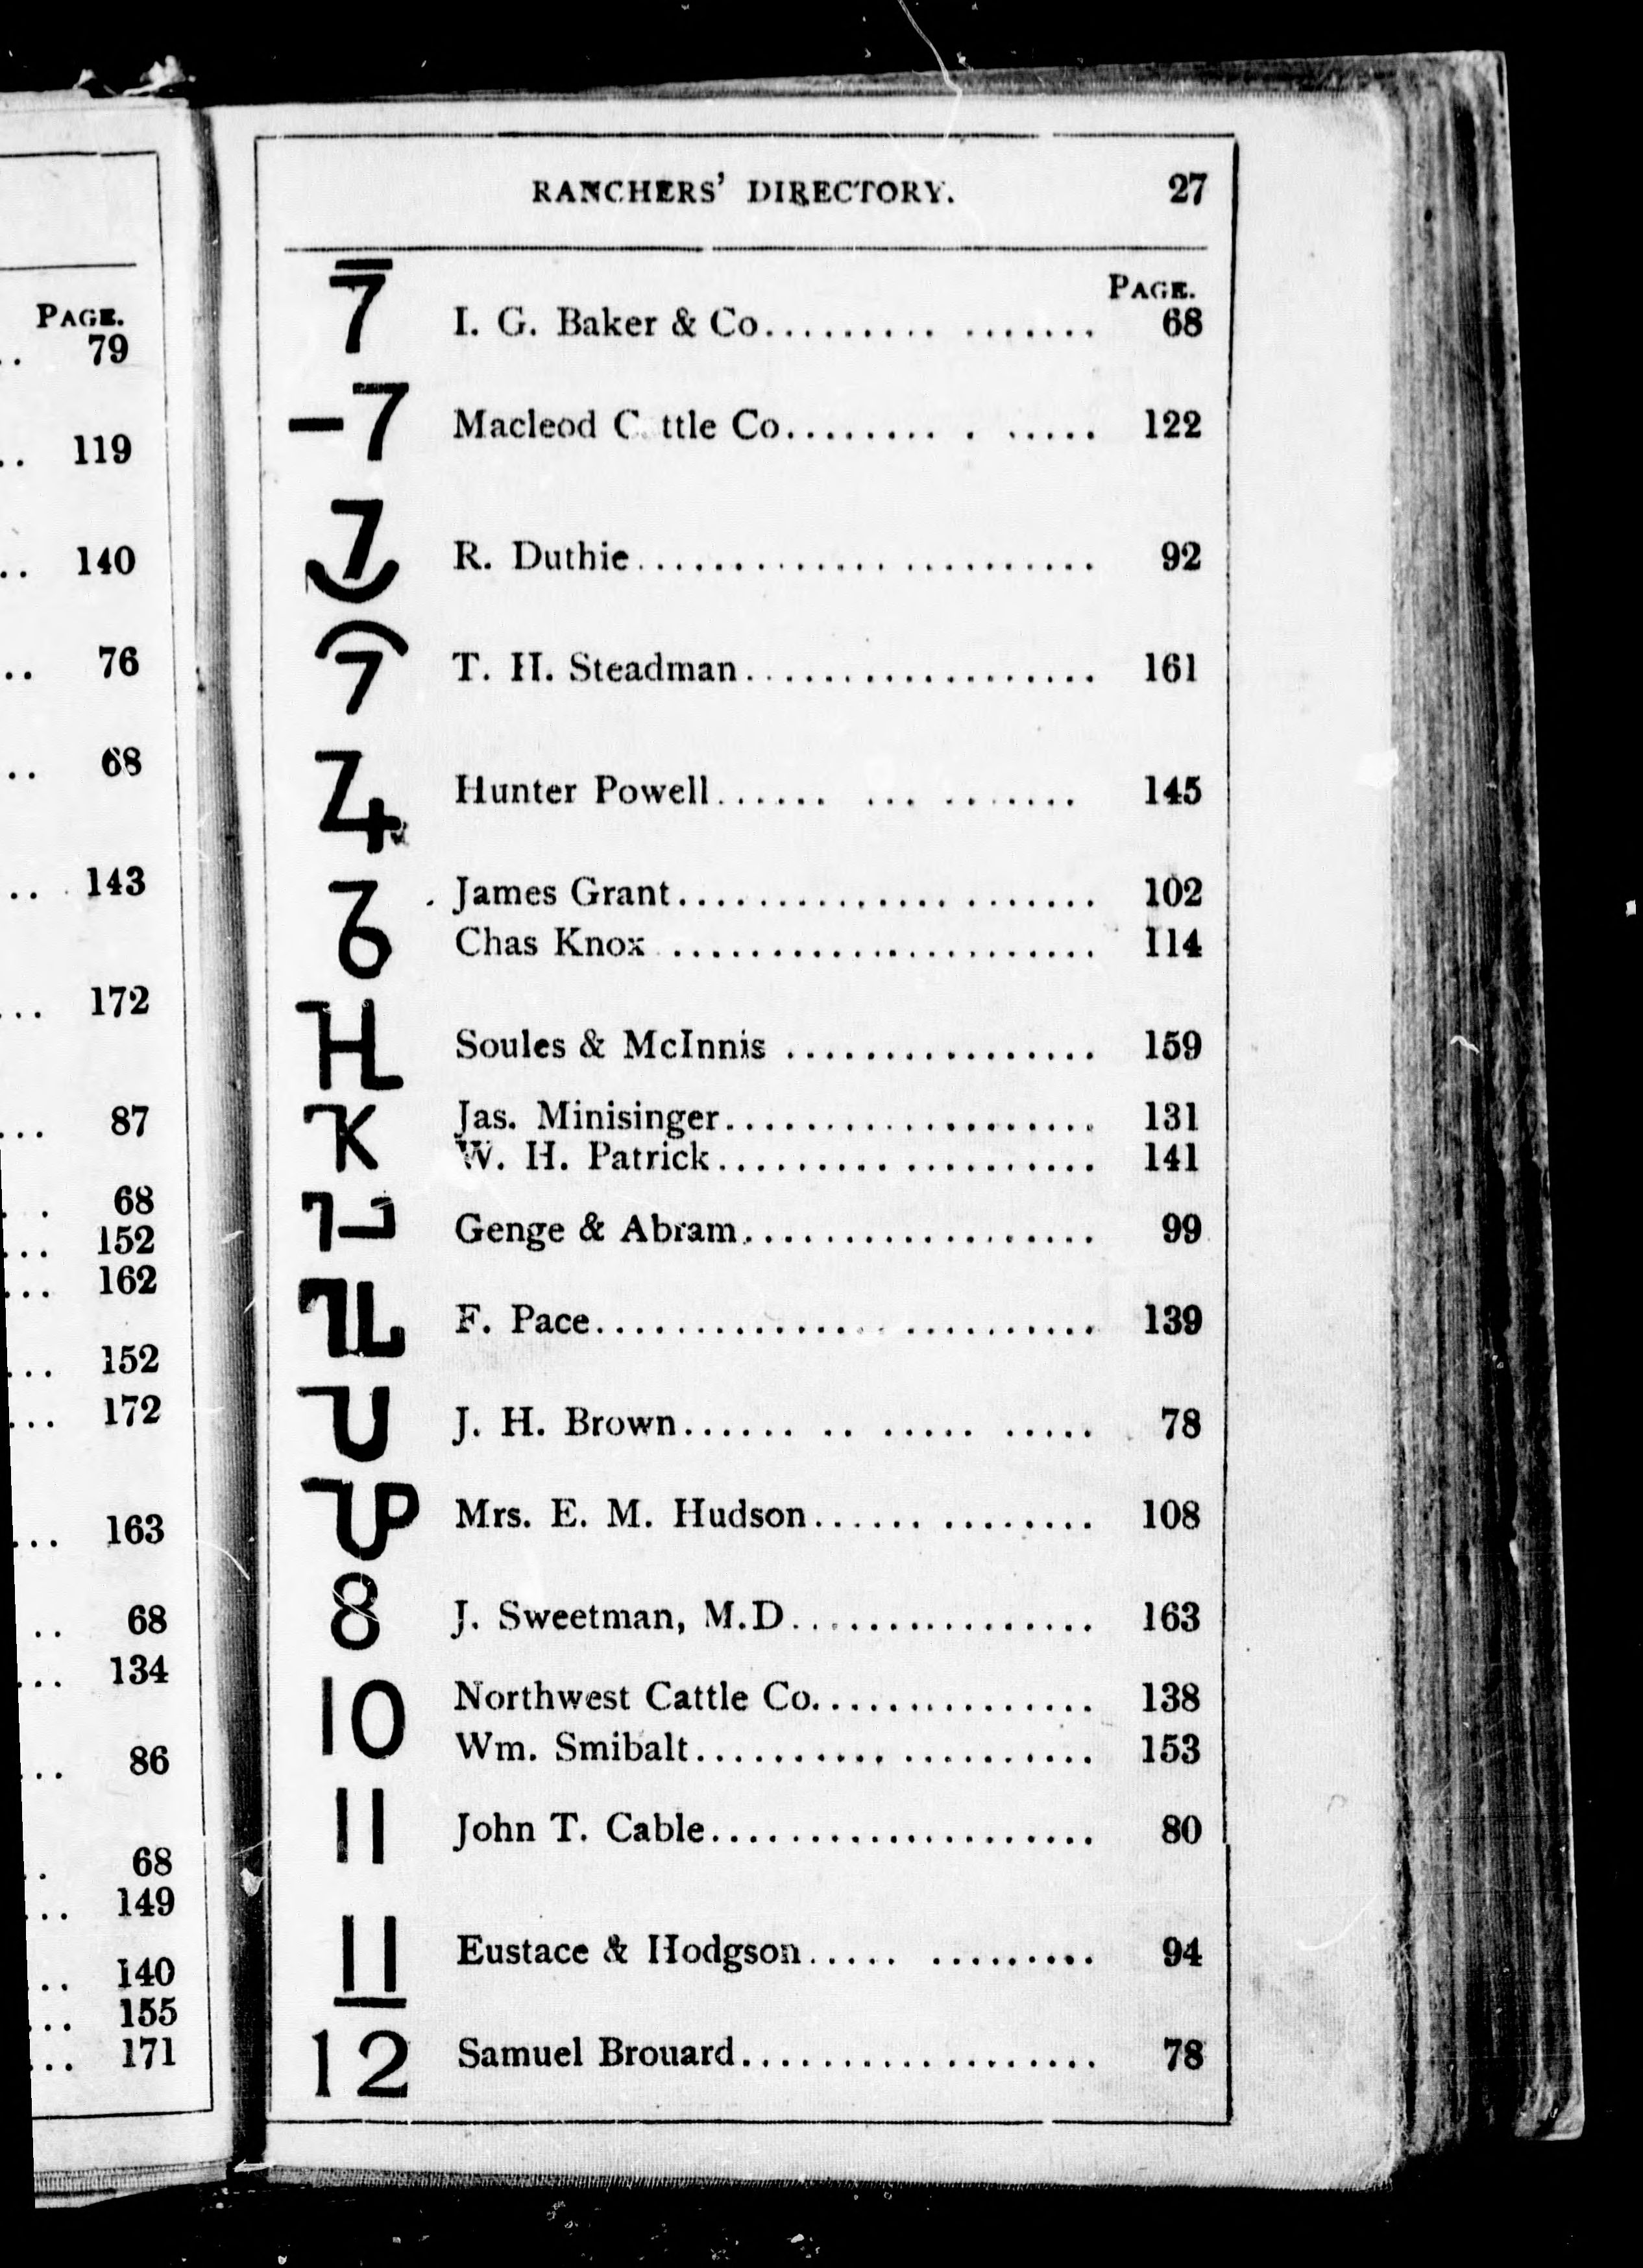 PAGE.
.. 79
.. 119
.. 140
.. 76
.. 68
.. 143
... 172
... 87
. . 68
... 152
... 162
... 152
... 172
... 163
.. 68
... 134
... 86
. 68
... 149
.. 140
... 155
... 171
RANCHERS' DIRECTORY. 27
PAGE.
7 I. G. Baker & Co................ 68
-7 Macleod C ttle Co.............. 122
7 R. Duthie....................... 92
7 T. H. Steadman.................. 161
Hunter Powell................ 145
James Grant..................... 102
Chas Knox ...................... 114
Soules & McInnis ................ 159
Jas. Minisinger................... 131
W. H. Patrick................... 141
Genge & Abram.................. 99
F. Pace......................... 139
J. H. Brown.................. 78
Mrs. E. M. Hudson.............. 108
8 J. Sweetman, M.D................ 163
10 Northwest Cattle Co.............. 138
Wm. Smibalt.................... 153
11 John T. Cable.................... 80
11 Eustace & Hodgson.............. 94
12 Samuel Brouard................... 78